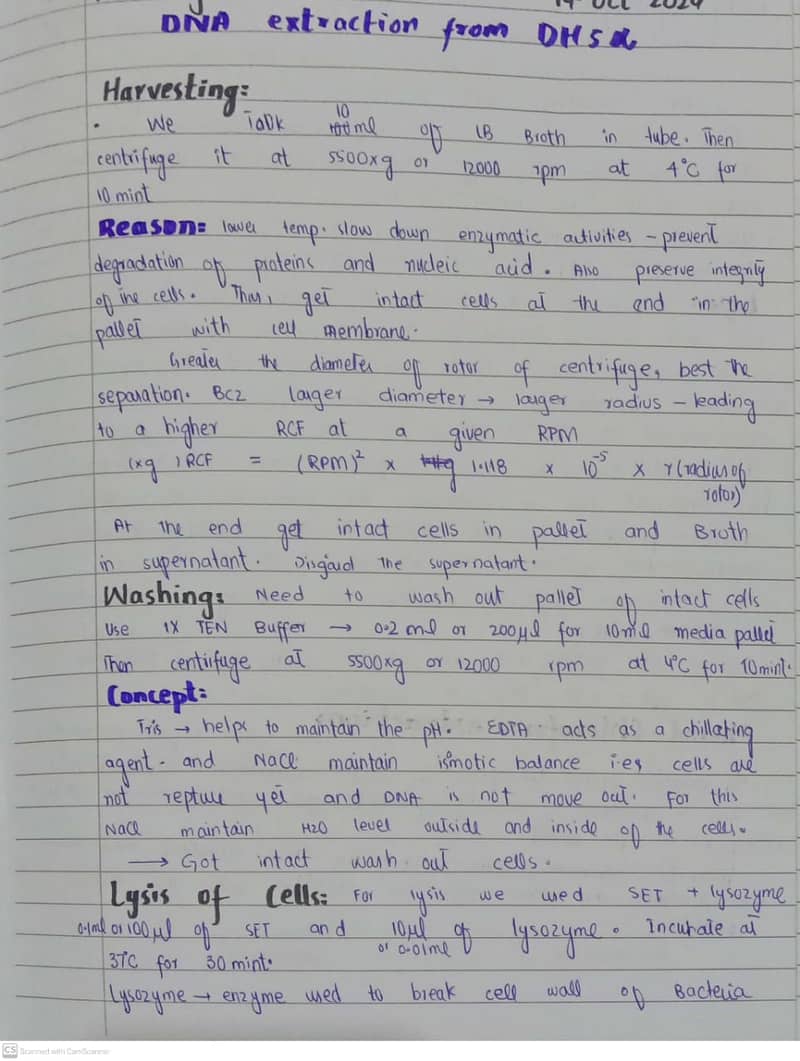 14 Oct 2024
DNA extraction from DH5α
Harvesting:
• We took 10 ml of LB Broth in tube. Then
centrifuge it at 5500xg or 12000 rpm at 4°C for
10 mint
Reason: lower temp. slow down enzymatic activities - prevent
degradation of proteins and nucleic acid. Also preserve integrity
of the cells. Thus, get intact cells at the end in the
pallet with cell membrane.
Greater the diameter of rotor of centrifuge, best the
separation. Bcz larger diameter → larger radius - leading
to a higher RCF at a given RPM
(xg) RCF = (RPM)² x 1.118 x 10⁻⁵ x r (radius of
rotor)
At the end get intact cells in pallet and Broth
in supernatant. Disgard the supernatant.
Washing: Need to wash out pallet of intact cells
Use 1X TEN Buffer → 0.2 ml or 200µl for 10ml media pallet
Then centrifuge at 5500xg or 12000 rpm at 4°C for 10mint.
Concept:
Tris → helps to maintain the pH. EDTA acts as a chillating
agent. and NaCl maintain ismotic balance i.e, cells are
not repture yet and DNA is not move out. For this
NaCl maintain H2O level outside and inside of the cells.
→ Got intact wash out cells.
Lysis of Cells: For lysis we used SET + lysozyme
0.1ml or 100µl of SET and 10µl of lysozyme. Incubate at
or 0.01ml
37C for 30 mint.
Lysozyme → enzyme used to break cell wall of Bacteria
CS Scanned with CamScanner